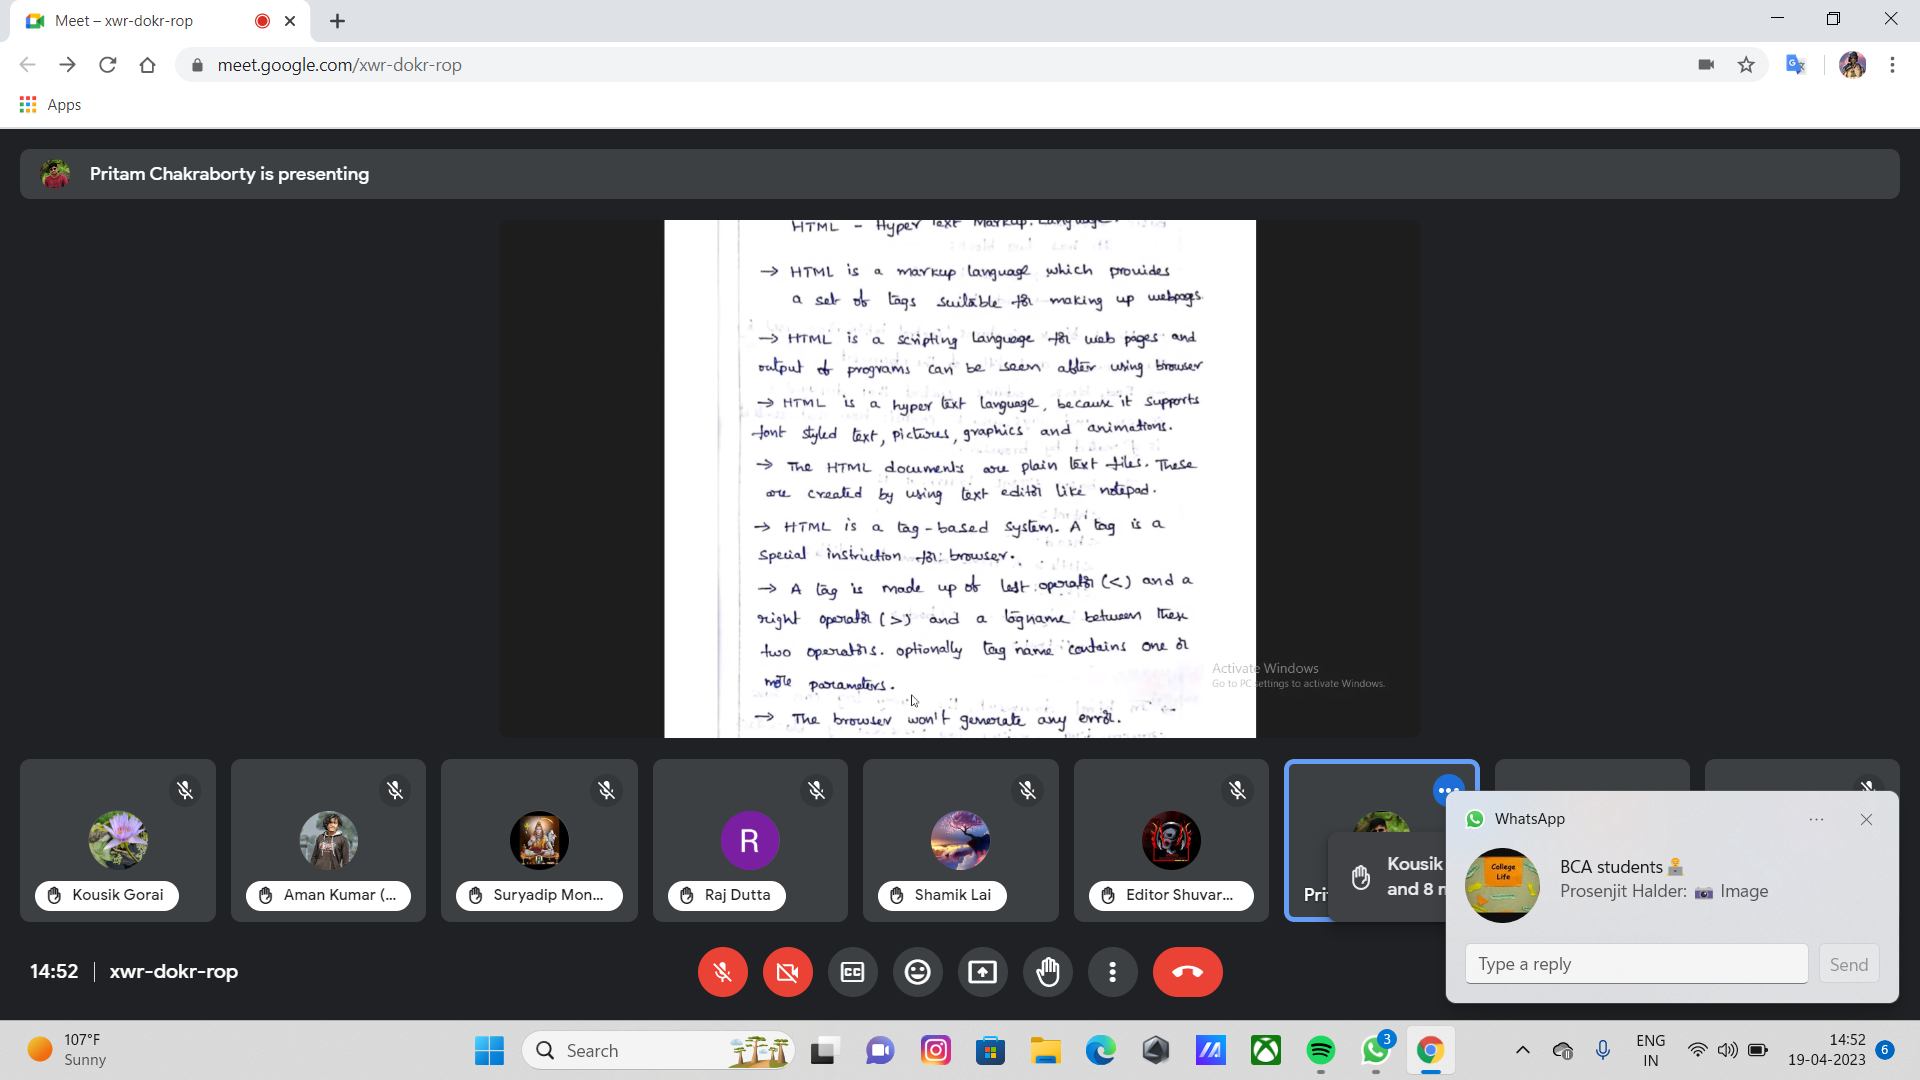 Meet – xwr-dokr-rop
meet.google.com/xwr-dokr-rop
Apps
Pritam Chakraborty is presenting
HTML - Hyper Text Markup Language.
→ HTML is a markup language which provides
a set of tags suitable for making up webpages
→ HTML is a scripting language for web pages and
output of programs can be seen after using browser
→ HTML is a hyper text language, because it supports
font styled text, pictures, graphics and animations.
→ The HTML documents are plain text files. These
are created by using text editor like notepad.
→ HTML is a tag-based system. A tag is a
special instruction for browser.
→ A tag is made up of left operator (<) and a
right operator (>) and a tagname between these
two operators. optionally tag name contains one or
more parameters.
→ The browser won't generate any error.
Activate Windows
Go to PC settings to activate Windows.
Kousik Gorai
Aman Kumar (...
Suryadip Mon...
R
Raj Dutta
Shamik Lai
Editor Shuvar...
Pri
Kousik
and 8 m
WhatsApp
College
Life
BCA students
Prosenjit Halder: Image
Type a reply
Send
14:52 | xwr-dokr-rop
107°F
Sunny
Search
3
ENG
IN
14:52
19-04-2023
6